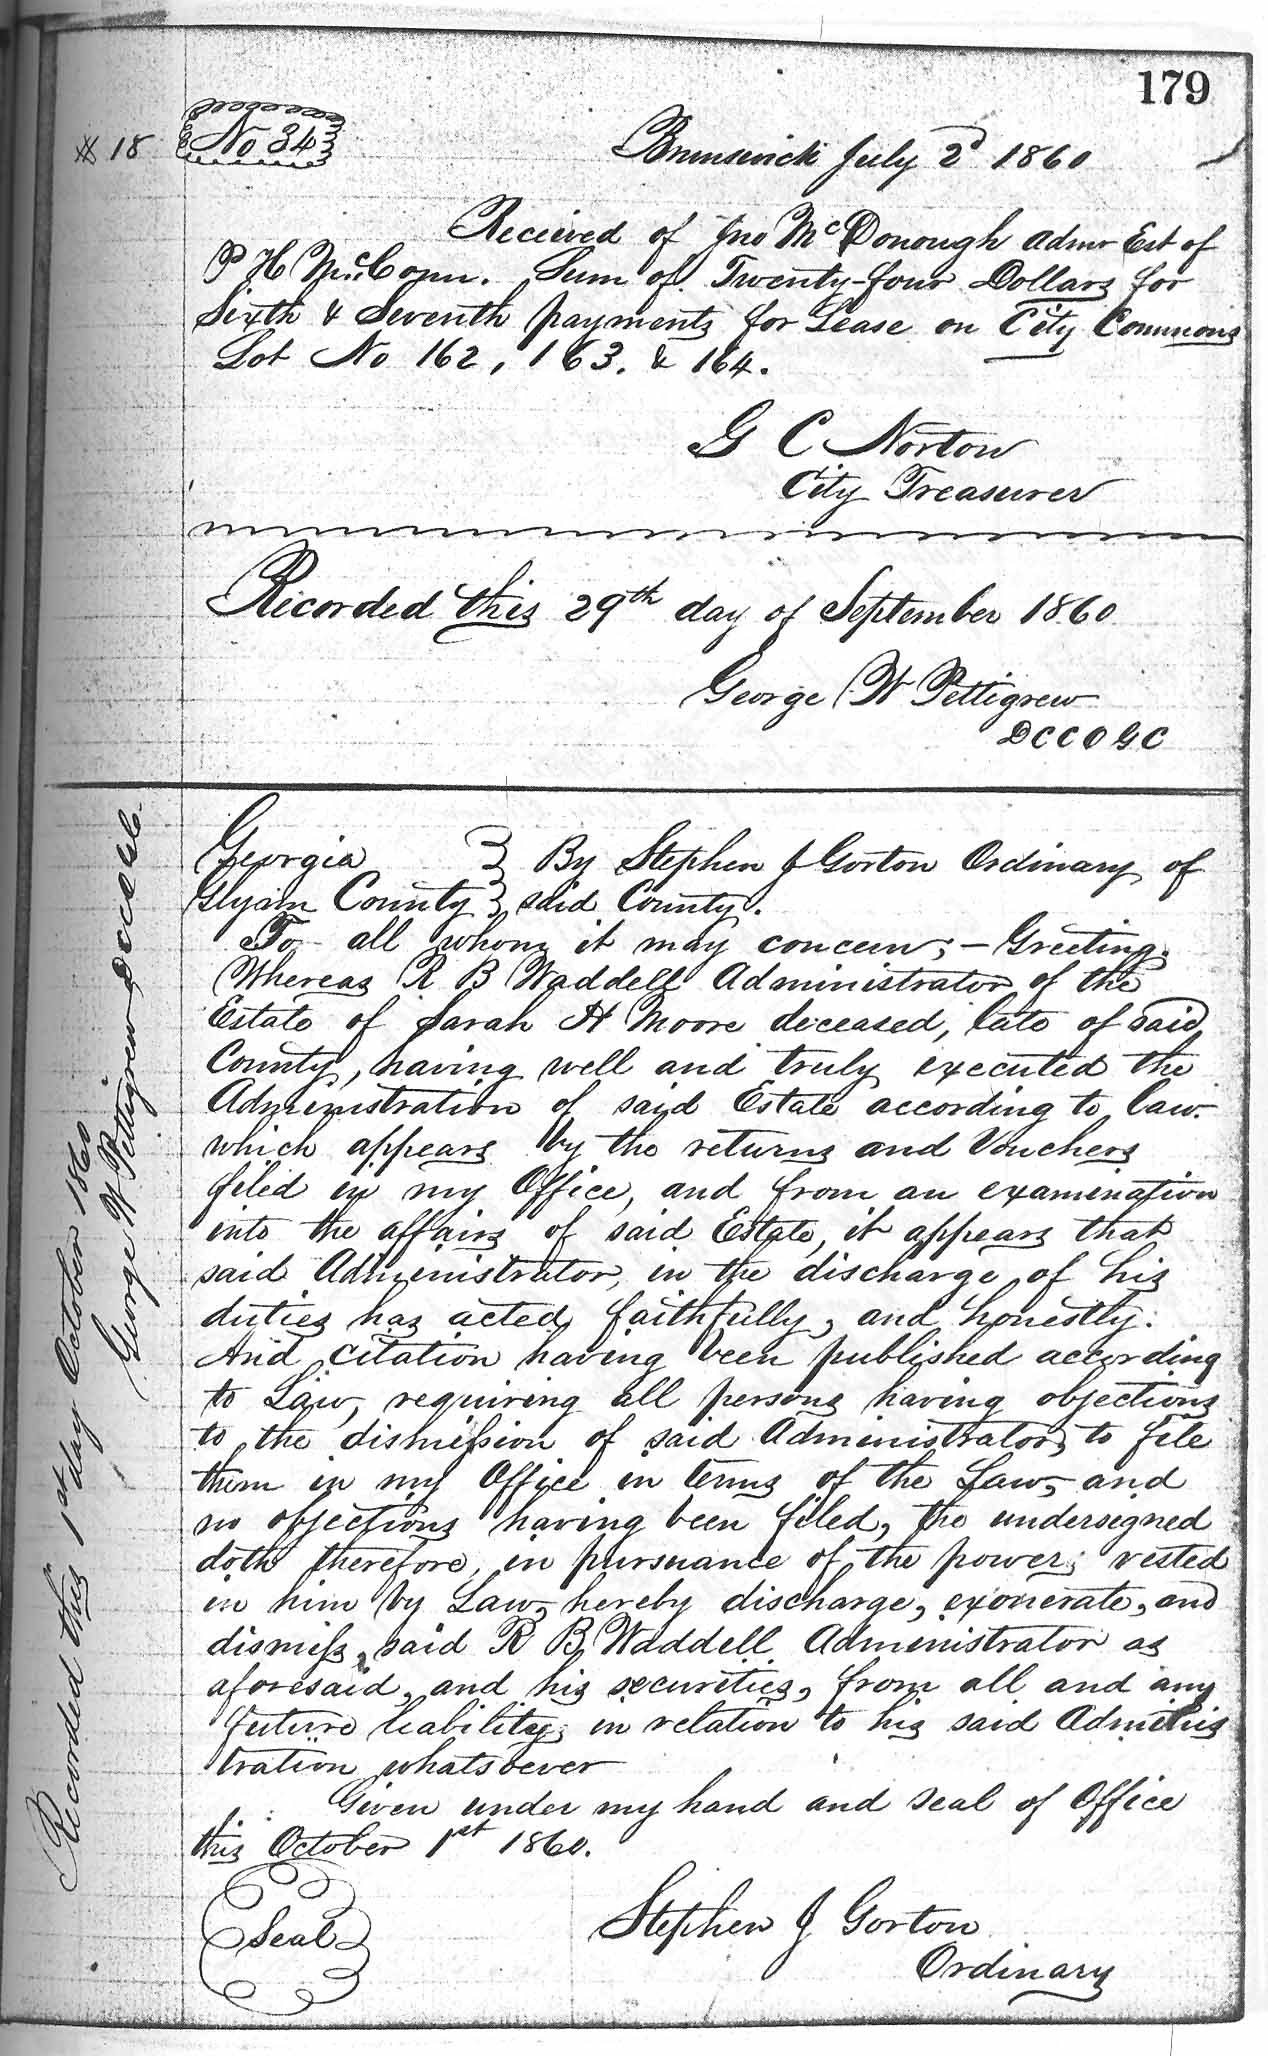 179
# 18 No 34
Brunswick July 2d 1860
Recieved of Jno McDonough Admr Est of
P H McConn. Sum of Twenty-four Dollars for
Sixth & Seventh payments for Lease on City Commons
Lot No 162, 163. & 164.
G C Norton
City Treasurer
Recorded this 29th day of September 1860
George W Pettigrew
DCCOGC
Georgia } By Stephen J Gorton Ordinary of
Glynn County } said County.
To all whom it may concern; - Greeting.
Whereas R B Waddell Administrator of the
Estate of Sarah H Moore deceased, late of said
County, having well and truly executed the
Administration of said Estate according to law.
which appears by the returns and Vouchers
filed in my Office, and from an examination
into the affairs of said Estate, it appears that
said Administrator, in the discharge of his
duties has acted faithfully, and honestly.
And citation having been published according
to Law, requiring all persons having objections
to the dismission of said Administrator, to file
them in my Office in terms of the Law, and
no objections having been filed, the undersigned
doth therefore, in pursuance of the power, vested
in him by Law, hereby discharge, exonerate, and
dismiss, said R B Waddell Administrator as
aforesaid, and his securities, from all and any
future liability in relation to his said Adminis
tration whatsoever
Given under my hand and seal of Office
this October 1st 1860.
Seal
Stephen J Gorton
Ordinary
Recorded this 1st day October 1860
George W Pettigrew DCCOGC.